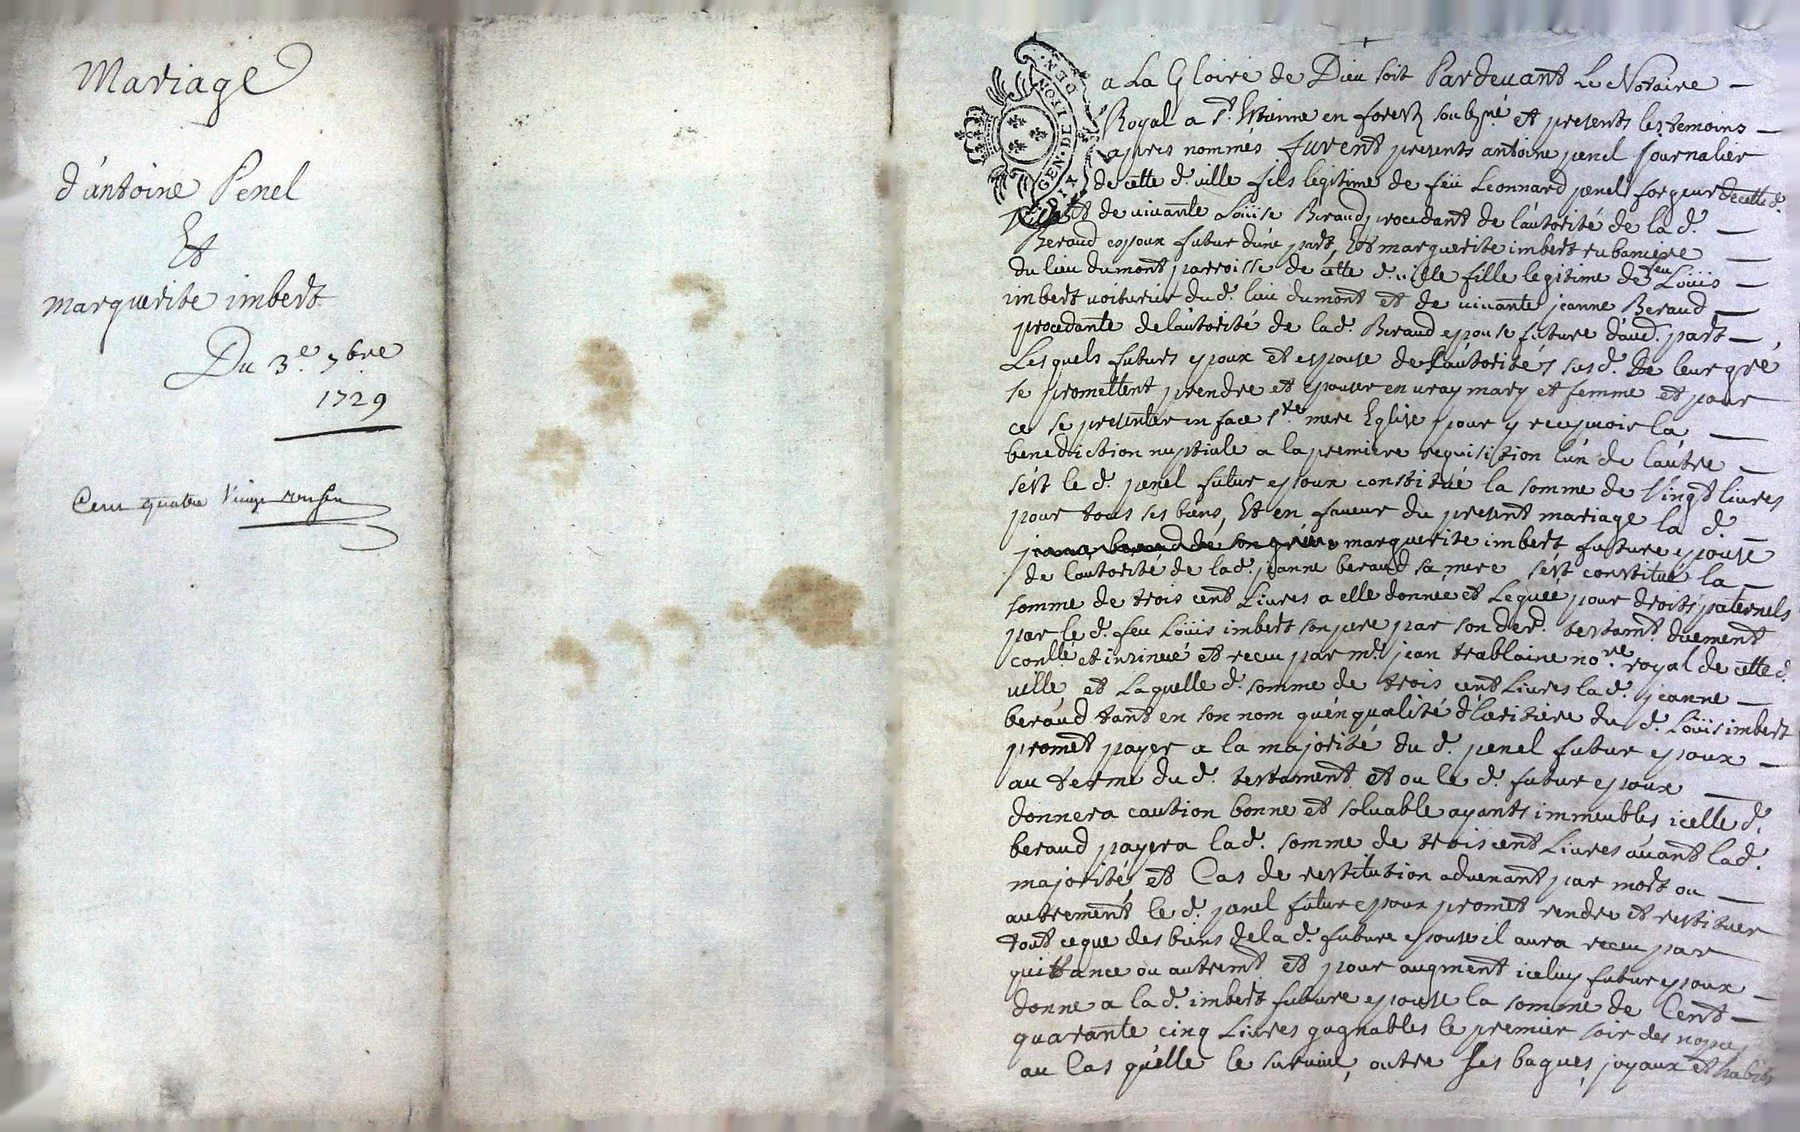 Mariage
d'antoine Penel
Et
marguerite imbert
Du 3.e 7bre
1729
Cent quatre vingt
GEN. DE LION
a La Gloire de Dieu soit Pardevant Le Notaire
Royal a St. Etienne en forest soubsne. et presents les temoins
apres nommés furent presents antoine penel Journalier
de cette d. ville fils legitime de feü Leonnard penel forgeur de cette d.
ville et de vivante Loüise Beraud procedant de l'autorité de la d.
Beraud espoux futur d'une part, Et marguerite imbert rubaniere
du lieu dumont parroisse de cette d. ville fille legitime de feu Loüis
imbert voiturier du d. lieu dumont et de vivante jeanne Beraud
procedante de l'autorité de la d. Beraud espouse future d'aud. part
Lesquels futurs espoux et espouse de l'autorités sus d. De leur gré
se promettent prendre et espouser en vray mary et femme et pour
ce se presenter en face ste. mere Eglise pour y recepvoir la
benediction nuptiale a la premiere requisition l'un de l'autre
s'est le d. penel futur espoux constitué la somme de vingt livres
pour tous ses biens, Et en faveur du present mariage la d.
jeanne beraud de son gré marguerite imbert future espouse
de l'autorité de la d. jeanne beraud sa mere s'est constitué la
somme de trois cent Livres a elle donnée et Leguée pour droits paternels
par le d. feu Loüis imbert son pere par son der. testamt. duement
conllé et insinué et receu par me. jean trablaine nore. royal de cette d.
ville et Laquelle d. somme de trois cent Livres la d. jeanne
beraud tant en son nom qu'en qualité d'heritiere du d. Loüis imbert
promet payer a la majorité du d. penel futur espoux
au terme du d. testament et ou le d. futur espoux
donnera caution bonne et soluable ayants immeubles icelle d.
beraud payera la d. somme de trois cent Livres avant la d.
majorité, et Cas de restitution advenant par mort ou
autrement le d. penel futur espoux promet rendre et restituer
tout ce que des biens de la d. future espouse il aura receu par
quittance ou autremt. et pour augment iceluy futur espoux
donne a la d. imbert future espouse la somme de Cent
quarante cinq Livres gagnables le premier soir des nopces
au Cas qu'elle le survive, outre ses bagues, joyaux et habits